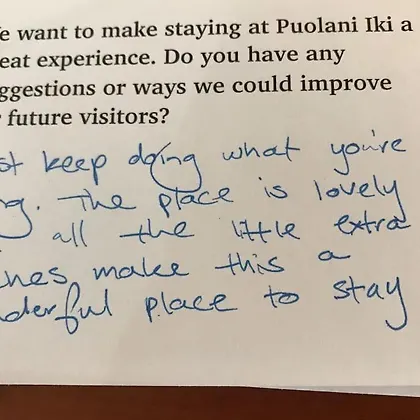 e want to make staying at Puolani Iki a
eat experience. Do you have any
ggestions or ways we could improve
future visitors?
st keep doing what you're
ng. The place is lovely
all the little extra
ches make this a
derful place to stay